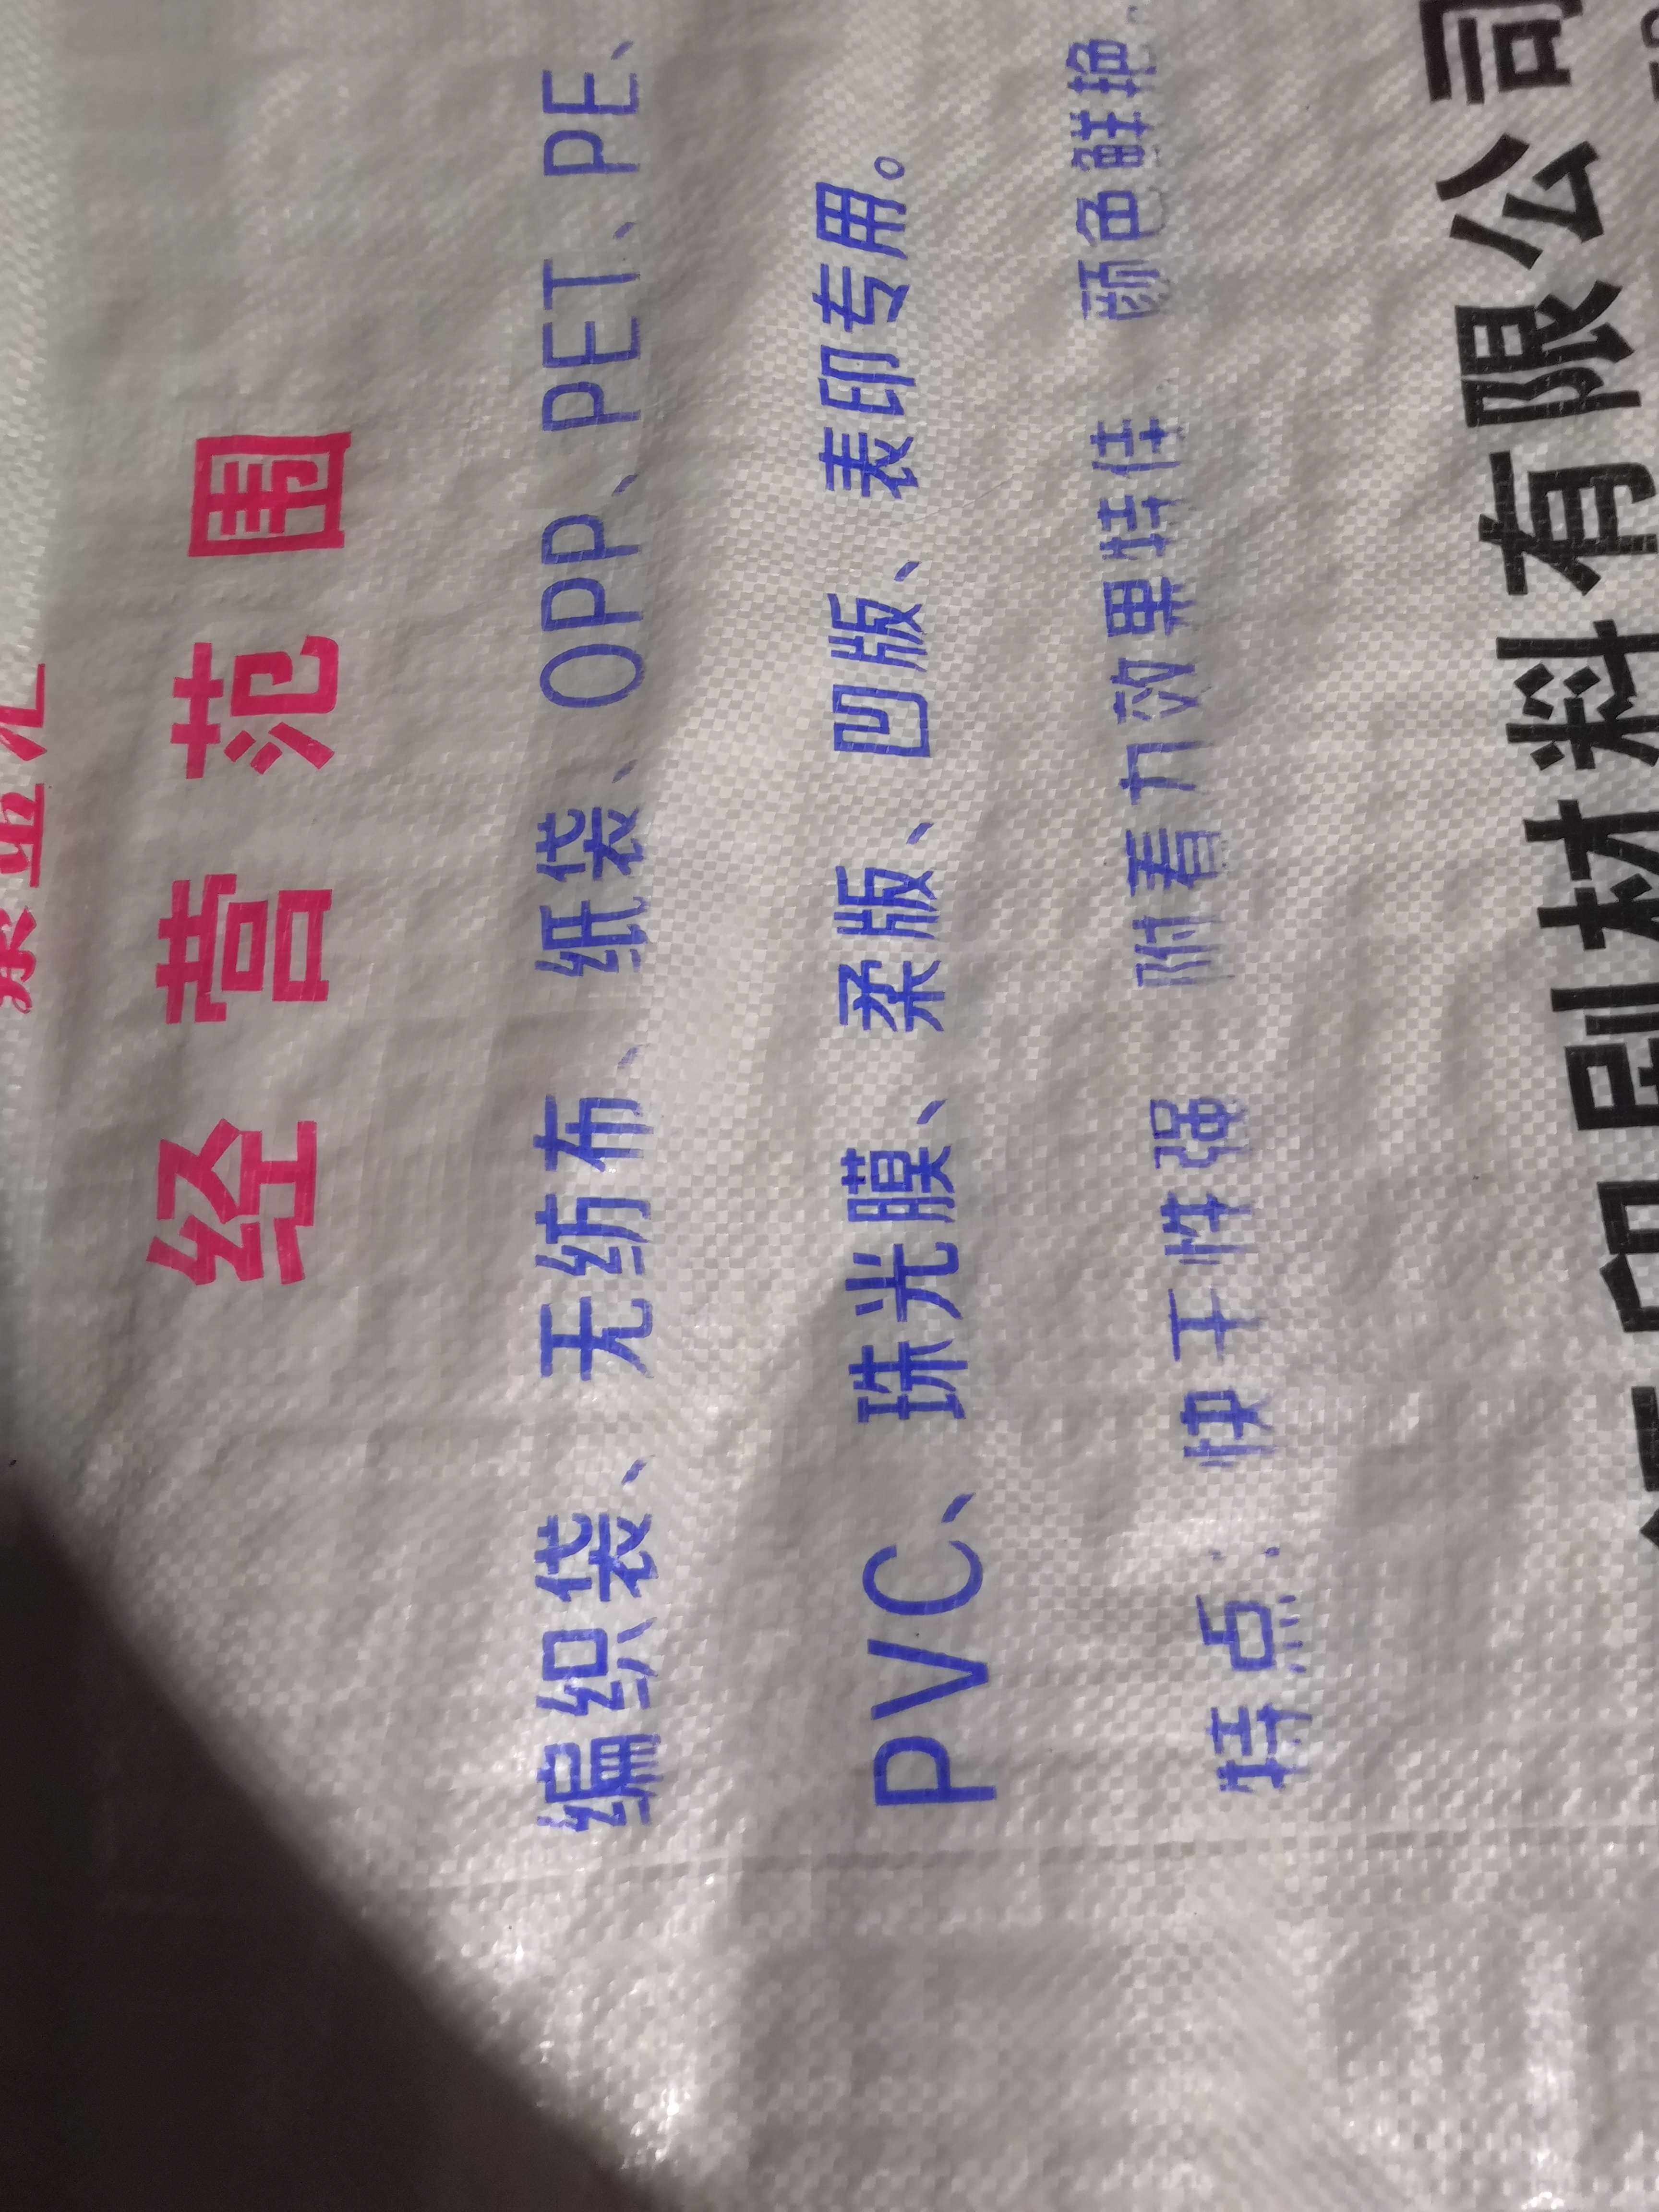 经营范围
编织袋、无纺布、纸袋、OPP、PET、PE、
PVC、珠光膜、柔版、凹版、表印专用。
特点：快干性强 附着力效果特佳 颜色鲜艳
印刷材料有限公司